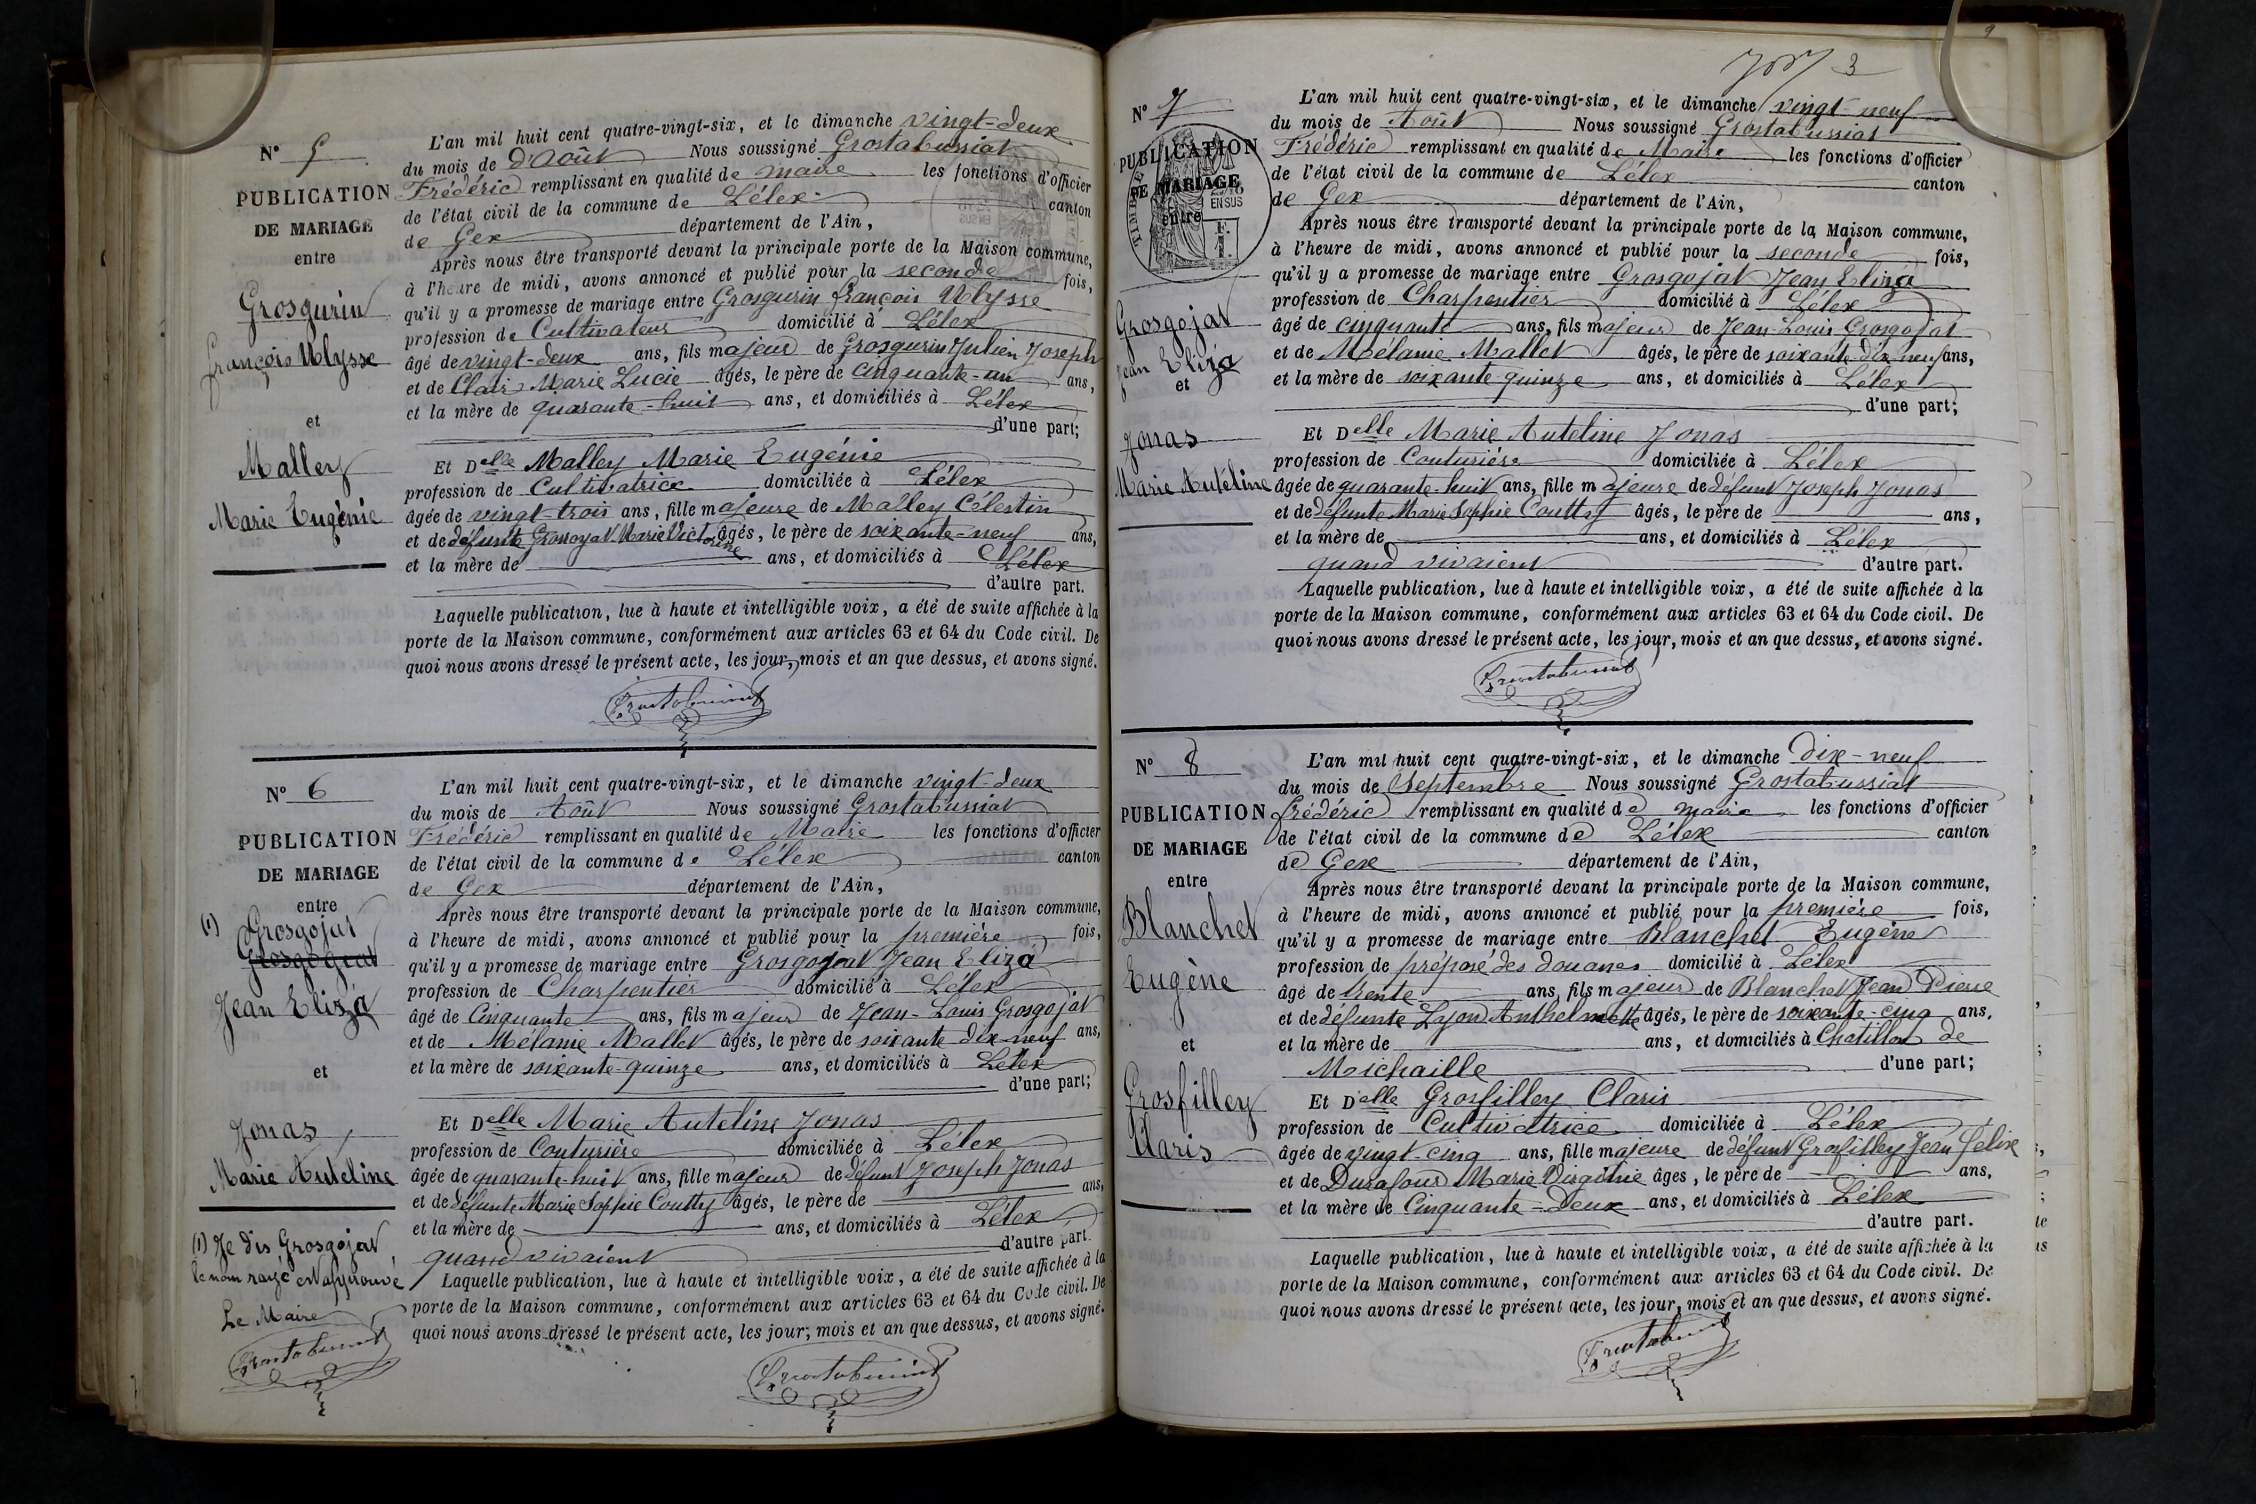 N° 5
PUBLICATION
DE MARIAGE
entre
Grosgurin
François Ulysse
et
Malley
Marie Eugénie
L'an mil huit cent quatre-vingt-six, et le dimanche vingt-deux
du mois de d'Août Nous soussigné Grostabussiat
Frédéric remplissant en qualité de maire les fonctions d'officier
de l'état civil de la commune de Lélex canton
de Gex département de l'Ain,
Après nous être transporté devant la principale porte de la Maison commune,
à l'heure de midi, avons annoncé et publié pour la seconde fois,
qu'il y a promesse de mariage entre Grosgurin François Ulysse
profession de Cultivateur domicilié à Lélex
âgé de vingt-deux ans, fils majeur de Grosgurin Julien Joseph
et de Clair Marie Lucie âgés, le père de cinquante-un ans,
et la mère de quarante-huit ans, et domiciliés à Lélex
d'une part;
Et Delle Malley Marie Eugénie
profession de Cultivatrice domiciliée à Lélex
âgée de vingt-trois ans, fille majeure de Malley Célestin
et de défunte Marie Victorine âgés, le père de soixante-neuf ans,
et la mère de ans, et domiciliés à Lélex
d'autre part.
Laquelle publication, lue à haute et intelligible voix, a été de suite affichée à la
porte de la Maison commune, conformément aux articles 63 et 64 du Code civil. De
quoi nous avons dressé le présent acte, les jour, mois et an que dessus, et avons signé.
Grostabussiat
N° 6
PUBLICATION
DE MARIAGE
entre
(1) Grosgojat
Grosgogeat
Jean Eliza
et
Jonas
Marie Auteline
(1) Je dis Grosgojat
le nom rayé est approuvé
Le Maire
Grostabussiat
L'an mil huit cent quatre-vingt-six, et le dimanche vingt-deux
du mois de Août Nous soussigné Grostabussiat
Frédéric remplissant en qualité de Maire les fonctions d'officier
de l'état civil de la commune de Lélex canton
de Gex département de l'Ain,
Après nous être transporté devant la principale porte de la Maison commune,
à l'heure de midi, avons annoncé et publié pour la première fois,
qu'il y a promesse de mariage entre Grosgojat Jean Eliza
profession de Charpentier domicilié à Lélex
âgé de Cinquante ans, fils majeur de Jean-Louis Grosgojat
et de Mélanie Mallet âgés, le père de soixante dix-neuf ans,
et la mère de soixante-quinze ans, et domiciliés à Lélex
d'une part;
Et Delle Marie Auteline Jonas
profession de Couturière domiciliée à Lélex
âgée de quarante-huit ans, fille majeur de défunt Joseph Jonas
et de défunte Marie Sophie Coutty âgés, le père de ans,
et la mère de ans, et domiciliés à Lélex
quand vivaient d'autre part.
Laquelle publication, lue à haute et intelligible voix, a été de suite affichée à la
porte de la Maison commune, conformément aux articles 63 et 64 du Code civil. De
quoi nous avons dressé le présent acte, les jour, mois et an que dessus, et avons signé.
Grostabussiat
3
9
N° 7
PUBLICATION
DE MARIAGE
entre
EN SUS
Grosgojat
Jean Eliza
et
Jonas
Marie Autéline
L'an mil huit cent quatre-vingt-six, et le dimanche vingt-neuf
du mois de Août Nous soussigné Grostabussiat
Frédéric remplissant en qualité de Maire les fonctions d'officier
de l'état civil de la commune de Lélex canton
de Gex département de l'Ain,
Après nous être transporté devant la principale porte de la Maison commune,
à l'heure de midi, avons annoncé et publié pour la seconde fois,
qu'il y a promesse de mariage entre Grosgojat Jean Eliza
profession de Charpentier domicilié à Lélex
âgé de cinquante ans, fils majeur de Jean-Louis Grosgojat
et de Mélanie Mallet âgés, le père de soixante-dix-neuf ans,
et la mère de soixante quinze ans, et domiciliés à Lélex
d'une part;
Et Delle Marie Auteline Jonas
profession de Couturière domiciliée à Lélex
âgée de quarante-huit ans, fille majeure de défunt Joseph Jonas
et de défunte Marie Sophie Coutty âgés, le père de ans,
et la mère de ans, et domiciliés à Lélex
quand vivaient d'autre part.
Laquelle publication, lue à haute et intelligible voix, a été de suite affichée à la
porte de la Maison commune, conformément aux articles 63 et 64 du Code civil. De
quoi nous avons dressé le présent acte, les jour, mois et an que dessus, et avons signé.
Grostabussiat
N° 8
PUBLICATION
DE MARIAGE
entre
Blanchet
Eugène
et
Grosfilley
Claris
L'an mil huit cent quatre-vingt-six, et le dimanche dix-neuf
du mois de Septembre Nous soussigné Grostabussiat
Frédéric remplissant en qualité de maire les fonctions d'officier
de l'état civil de la commune de Lélex canton
de Gex département de l'Ain,
Après nous être transporté devant la principale porte de la Maison commune,
à l'heure de midi, avons annoncé et publié pour la première fois,
qu'il y a promesse de mariage entre Blanchet Eugène
profession de préposé des douanes domicilié à Lélex
âgé de trente ans, fils majeur de Blanchet Jean Pierre
et de défunte Lajon Anthelmette âgés, le père de soixante-cinq ans,
et la mère de ans, et domiciliés à Chatillon de
Michaille d'une part;
Et Delle Grosfilley Claris
profession de Cultivatrice domiciliée à Lélex
âgée de vingt-cinq ans, fille majeure de défunt Grosfilley Jean Félix
et de Durafour Marie Virginie âgés, le père de ans,
et la mère de Cinquante-Deux ans, et domiciliés à Lélex
d'autre part.
Laquelle publication, lue à haute et intelligible voix, a été de suite affichée à la
porte de la Maison commune, conformément aux articles 63 et 64 du Code civil. De
quoi nous avons dressé le présent acte, les jour, mois et an que dessus, et avons signé.
Grostabussiat